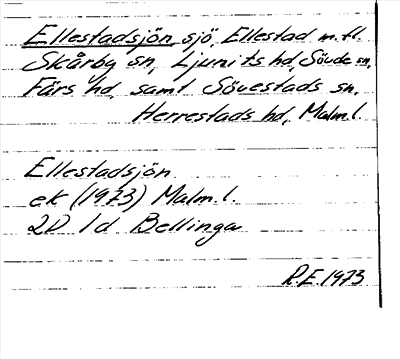 Ellestadsjön, sjö, Ellestad m.fl.
Skårby sn, Ljunits hd, Sövde sn,
Färs hd, samt Sövestads sn,
Herrestads hd, Malm.l.
Ellestadsjön
ek (1973) Malm.l.
2D 1d Bellinga
R.E. 1973